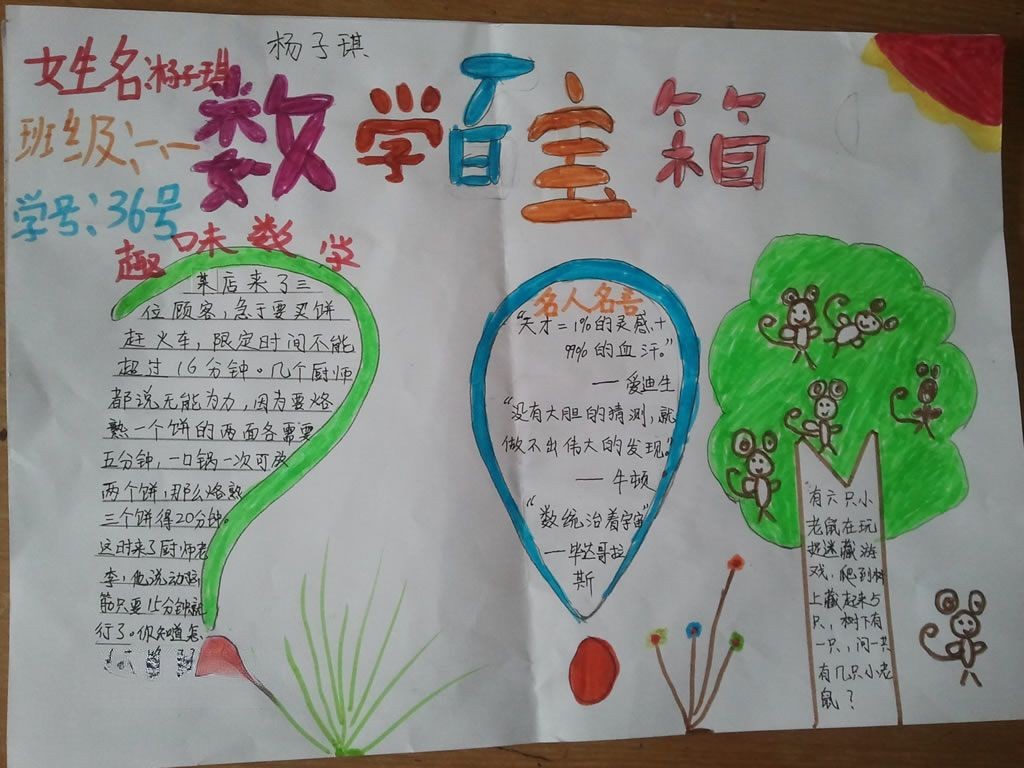 杨子琪
女生名:杨子琪
班级:六、一
学号:36号
数学百宝箱
趣味数学
菜店来了三
位顾客,急于要买饼
赶火车,限定时间不能
超过16分钟。几个厨师
都说无能为力,因为要烙
熟一个饼的两面各需要
五分钟,一口锅一次可放
两个饼,那么烙熟
三个饼得20分钟。
这时来了厨师老
李,他说动脑
筋只要15分钟就
行了。你知道怎
名人名言
“天才=1%的灵感+
99%的血汗。”
——爱迪生
“没有大胆的猜测,就
做不出伟大的发现。”
——牛顿
“数统治着宇宙”
——毕达哥拉
斯
有六只小
老鼠在玩
捉迷藏游
戏,爬到树
上藏起来5
只,树下有
一只,问一共
有几只小老
鼠?